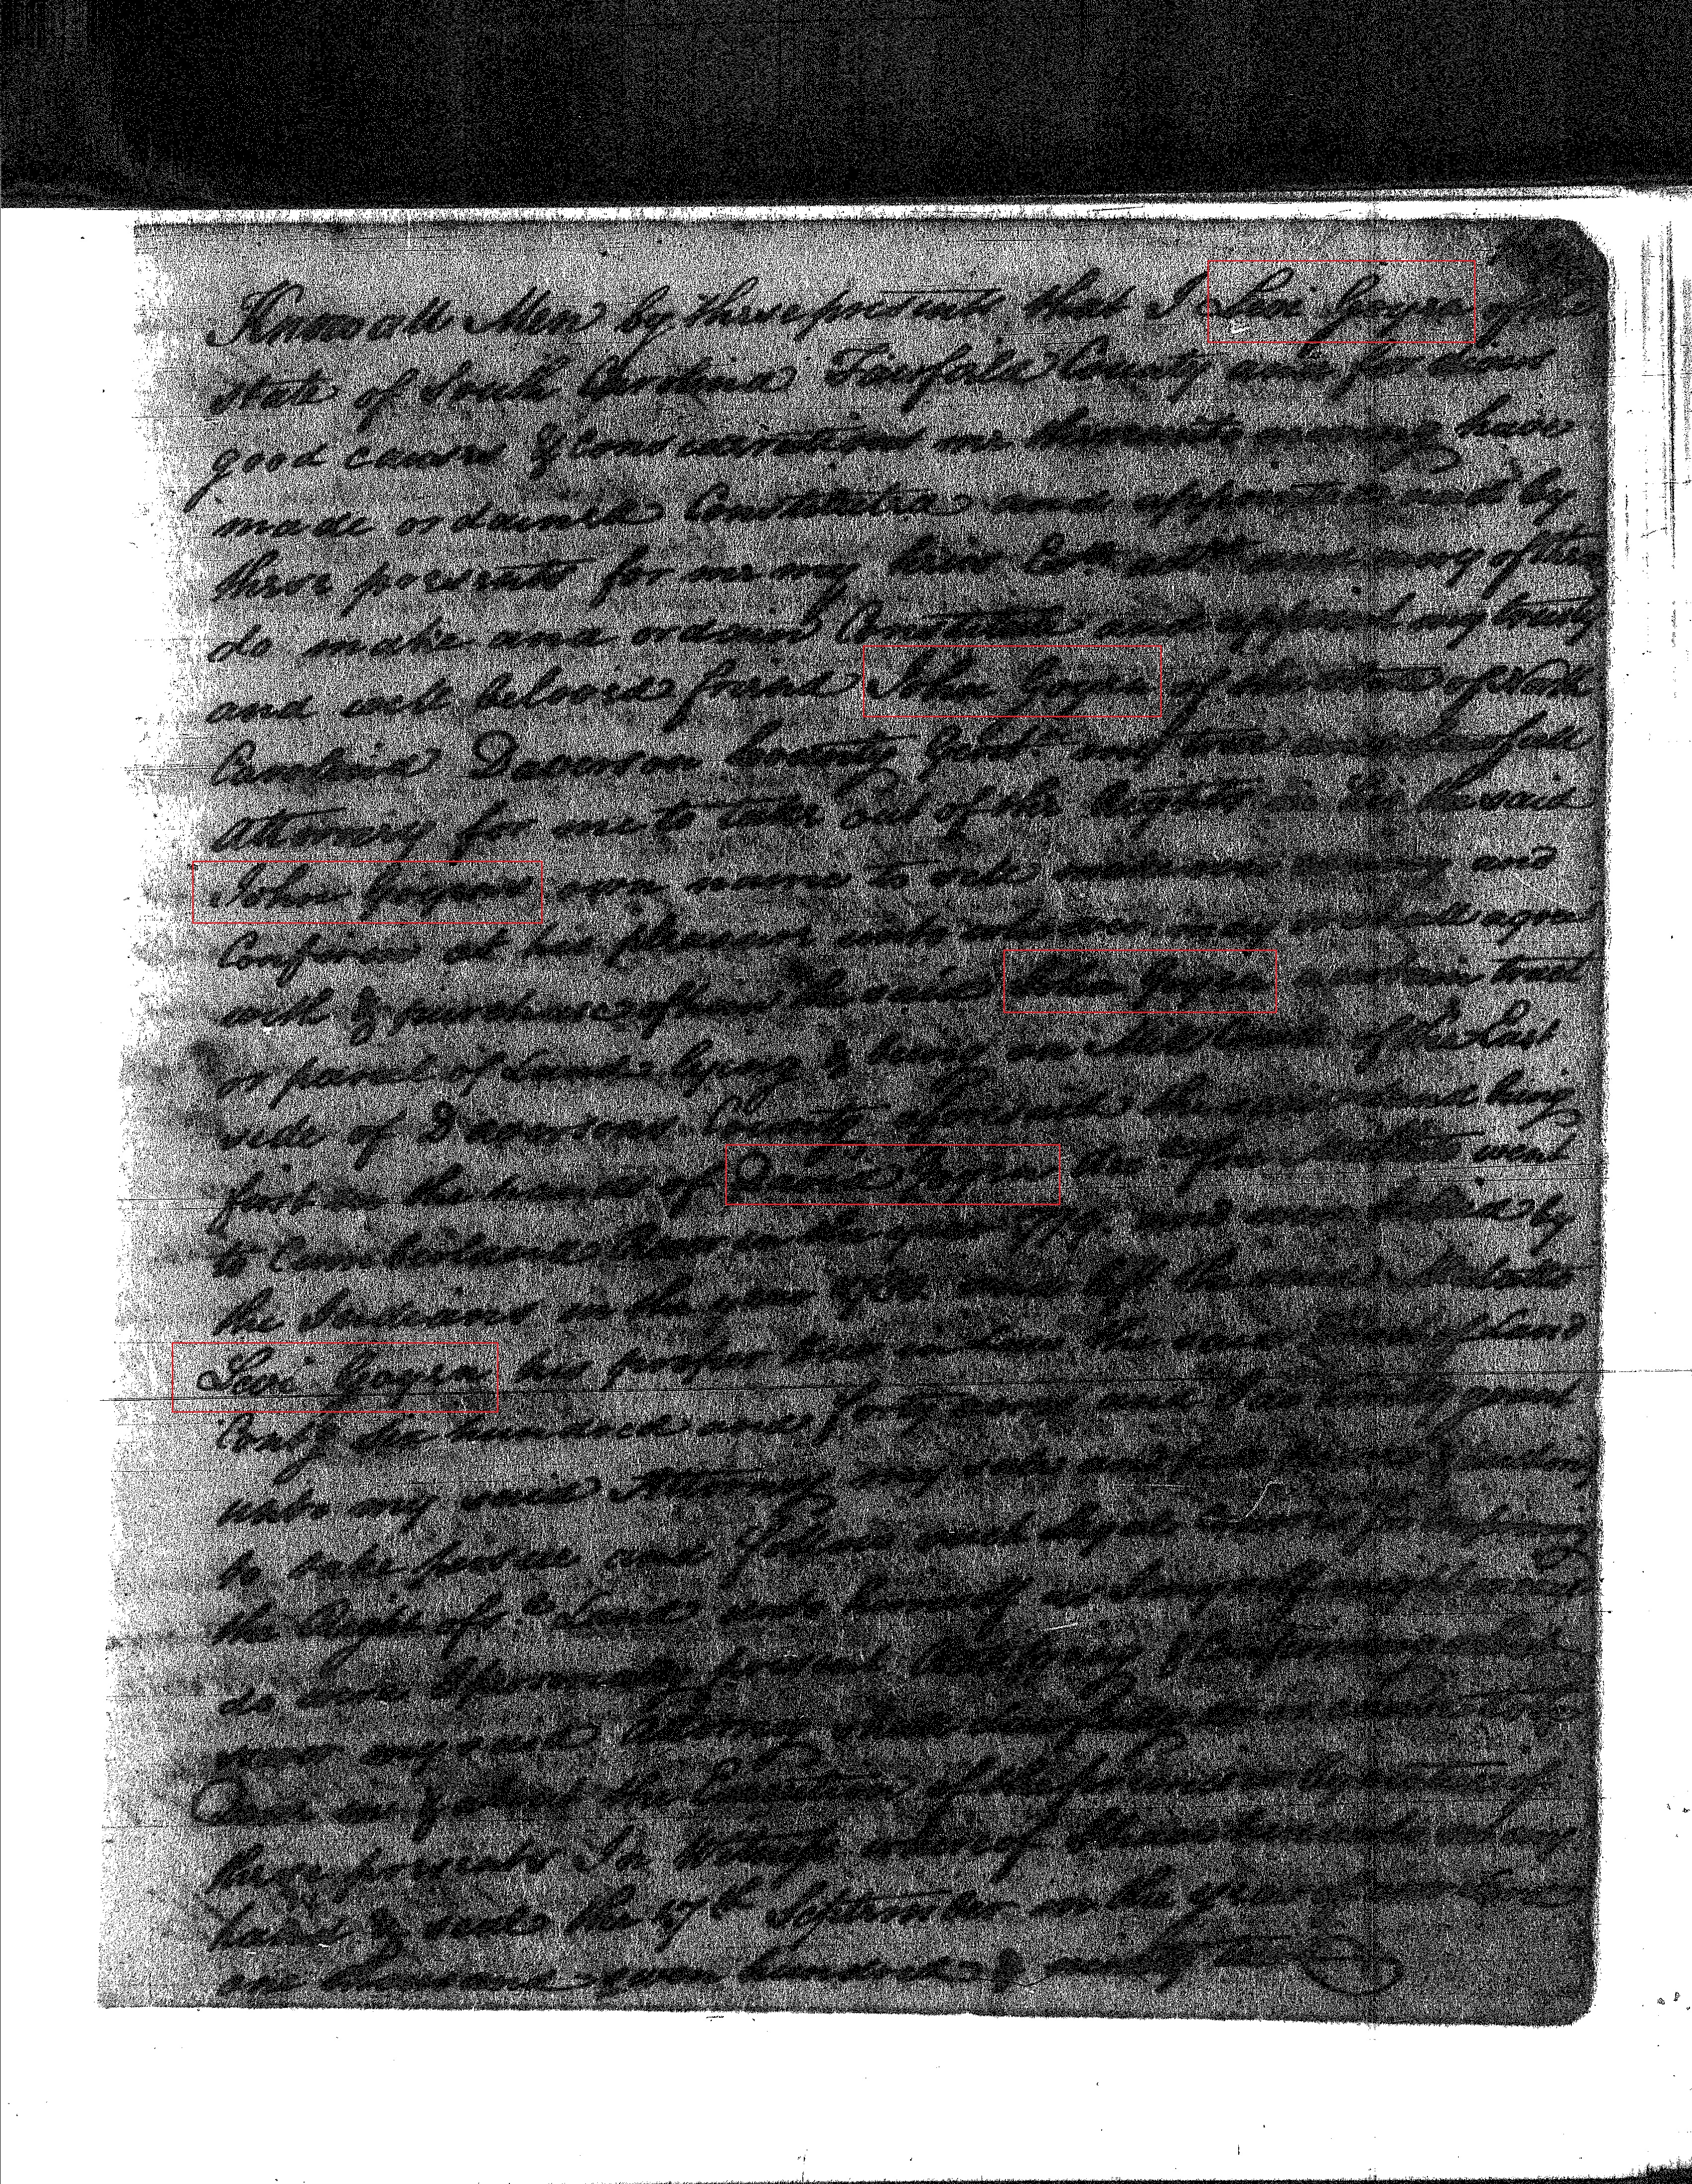 Know all Men by these presents that I Levi Goyen of the
state of South Carolina Fairfeild County and for divers
good causes & considerations me thereunto moving have
made ordained Constituted and appointed and by
these presents for me my heirs Exrs admrs and every of them
do make and ordain Constitute and appoint my trusty
and well beloved friend John Goyen of the State of North
Carolina Davidson County Gent. my true and lawfull
attorney for me to take out of the Rights in his the said
John Goyen's own name to and
Confirm at his pleasure unto may or shall agree
with & purchase of him the said John Goyen a certain tract
or parcel of Land lying & being on Mill Creek of the East
side of Davidson County aforesaid the said Land being
first in the hands of David Goyen Dec. The Mulatto went
to Cumberland River in the year and was killed by
the Indians in the year 1780 and left the said Mulatto
Levi Goyen his proper heir in Law the said Tract of Land
Contg. six hundred and forty acres and I do hereby grant
unto my said Attorney my sole and full Power &
to take persue and follow such legal Courses for
the Right of sd. Land and himself as I myself might or
do were I personally present Ratifying & confirming
my said attorney shall lawfully do or cause to be
Done in & about the Execution of the premises by virtue of
these presents In Witness whereof I have hereunto set my
hand & seal the 27th September in the year of our Lord
one thousand seven hundred & ninety two